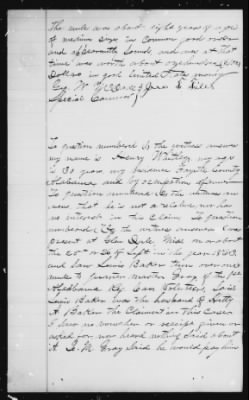 The mule was about eight years of age
of medium size in Common good order
and apparently Sound and was at that
time was worth about one hundred
Dollars in good United States money
Geo. W.
Special Commr
To question numbered the witness answers
my name is Henry my age
is 30 years my residence Fayette County
Alabama and by occupation a farmer
To question numbered 2 the witness an
swers that he is not a relative nor has
no interest in the claim To question
numbered 3 the witness answers I was
present at Glendale Miss on or about
the 20th or 25 of Sept in the year 1863
and saw Lewis Baker turn over one
mule to Quarter master Gray of the 1st
Alabama Reg Cav Volunteers, Said
Lewis Baker was the husband of Hetty
A Baker the Claimant in this Case
I saw no voucher or receipt given or
asked for nor heard nothing said about
it G. M. Gray Said he would pay him